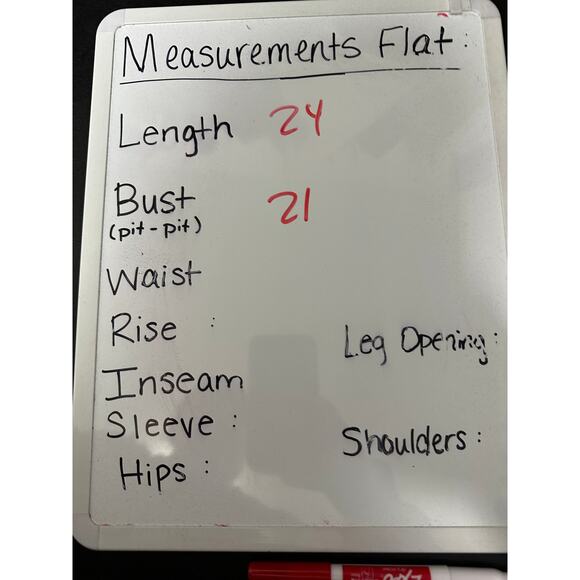 Measurements Flat:
Length 24
Bust 21
(pit-pit)
Waist
Rise :
Leg Opening:
Inseam
Sleeve :
Shoulders :
Hips :